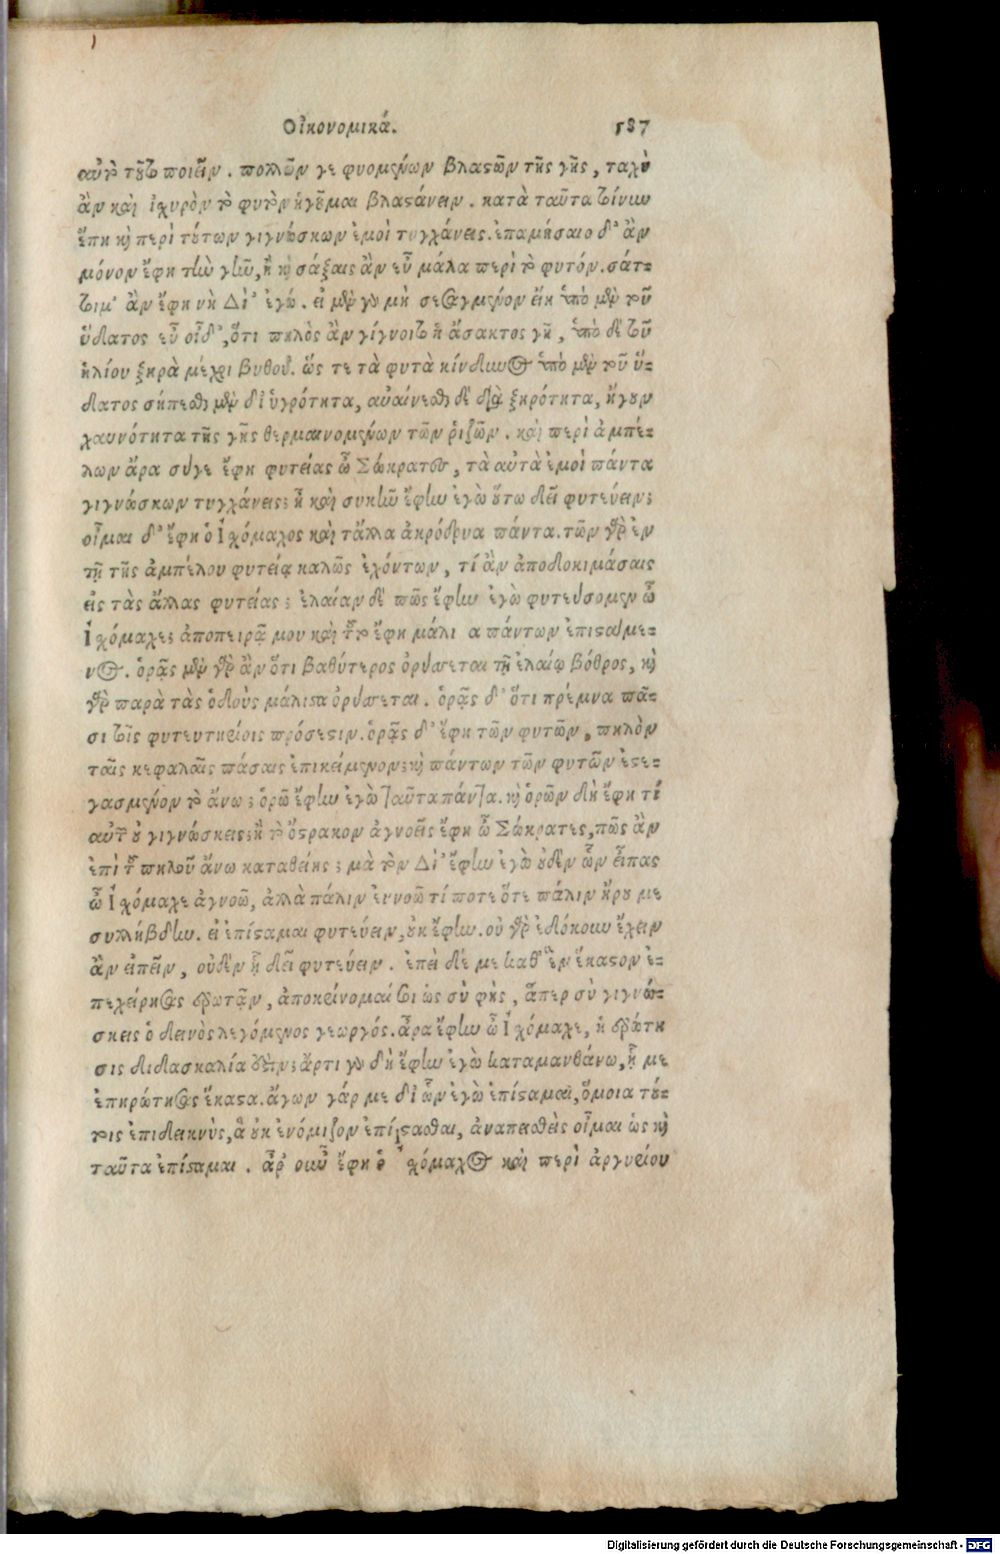 Οἰκονομικά. 587
αὐτὸ τοῦτο ποιεῖν. πολλῶν γε φυομένων βλαστῶν τῆς γῆς, ταχὺ
ἂν καὶ ἰχυρὸν τὸ φυτὸν ἡγοῦμαι βλαστάνειν. κατὰ ταῦτα τοίνυν
ἔπη καὶ περὶ τούτων γιγνώσκων ἐμοὶ τυγχάνεις. ἐπαμήσαιο δ' ἂν
μόνον ἔφη τὴν γῆν, ἢ καὶ σάξαις ἂν εὖ μάλα περὶ τὸ φυτόν. σάτ-
τοιμ' ἂν ἔφη νὴ Δί' ἐγώ. εἰ μὲν γὰρ μὴ σεσαγμένον εἴη ὑπὸ μὲν τοῦ
ὕδατος εὖ οἶδ', ὅτι πηλὸς ἂν γίγνοιτο ἡ ἄσακτος γῆ, ὑπὸ δὲ τοῦ
ἡλίου ξηρὰ μέχρι βυθοῦ. ὥς τε τὰ φυτὰ κίνδυνος ὑπὸ μὲν τοῦ ὕ-
δατος σήπεσθαι μὲν δι' ὑγρότητα, αὐαίνεσθαι δὲ διὰ ξηρότητα, ἤγουν
χαυνότητα τῆς γῆς θερμαινομένων τῶν ῥιζῶν. καὶ περὶ ἀμπέ-
λων ἄρα σύγε ἔφη φυτείας ὦ Σώκρατες, τὰ αὐτὰ ἐμοὶ πάντα
γιγνώσκων τυγχάνεις; ἦ καὶ συκῆν ἔφην ἐγὼ οὕτω δεῖ φυτεύειν;
οἶμαι δ' ἔφη ὁ Ἰχόμαχος καὶ τἄλλα ἀκρόδρυα πάντα. τῶν γὰρ ἐν
τῇ τῆς ἀμπέλου φυτείᾳ καλῶς ἐχόντων, τί ἂν ἀποδοκιμάσαις
εἰς τὰς ἄλλας φυτείας; ἐλαίαν δὲ πῶς ἔφην ἐγὼ φυτεύσομεν ὦ
Ἰχόμαχε; ἀποπειρᾷ μου καὶ τοῦτο ἔφη μάλι α πάντων ἐπιστάμε-
νος. ὁρᾷς μὲν γὰρ ἂν ὅτι βαθύτερος ὀρύσσεται τῇ ἐλαίῳ βόθρος, καὶ
γὰρ παρὰ τὰς ὁδοὺς μάλιστα ὀρύσσεται. ὁρᾷς δ' ὅτι πρέμνα πᾶ-
σι τοῖς φυτευτηρίοις πρόσεστιν. ὁρᾷς δ' ἔφη τῶν φυτῶν, πηλὸν
ταῖς κεφαλαῖς πάσαις ἐπικείμενον; καὶ πάντων τῶν φυτῶν ἐστε-
γασμένον τὸ ἄνω; ὁρῶ ἔφην ἐγὼ ταῦτα πάντα. καὶ ὁρῶν δὴ ἔφη τί
αὐτῶν οὐ γιγνώσκεις; ἢ τὸ ὄστρακον ἀγνοεῖς ἔφη ὦ Σώκρατες, πῶς ἂν
ἐπὶ τοῦ πηλοῦ ἄνω καταθείης; μὰ τὸν Δί' ἔφην ἐγὼ οὐδὲν ὧν εἶπας
ὦ Ἰχόμαχε ἀγνοῶ, ἀλλὰ πάλιν ἐννοῶ τί ποτε ὅτε πάλιν ἤρου με
συλλήβδην. εἰ ἐπίσταμαι φυτεύειν, οὐκ ἔφην. οὐ γὰρ ἐδόκουν ἔχειν
ἂν εἰπεῖν, οὐδὲν ᾗ δεῖ φυτεύειν. ἐπεὶ δέ με καθ' ἓν ἕκαστον ἐ-
πεχείρησας ἐρωτᾶν, ἀποκρίνομαί σοι ὡς σὺ φῂς, ἅπερ σὺ γιγνώ-
σκεις ὁ δεινὸς λεγόμενος γεωργός. ἆρα ἔφην ὦ Ἰχόμαχε, ἡ ἐρώτη
σις διδασκαλία ἐστίν; ἄρτι γὰρ δὴ ἔφην ἐγὼ καταμανθάνω, ᾗ με
ἐπηρώτησας ἕκαστα. ἄγων γάρ με δι' ὧν ἐγὼ ἐπίσταμαι, ὅμοια τού-
τοις ἐπιδεικνὺς, ἃ οὐκ ἐνόμιζον ἐπίστασθαι, ἀναπείθεις οἶμαι ὡς καὶ
ταῦτα ἐπίσταμαι. ἆρ' οὖν ἔφη ὁ Ἰχόμαχος καὶ περὶ ἀργυρίου
Digitalisierung gefördert durch die Deutsche Forschungsgemeinschaft - DFG